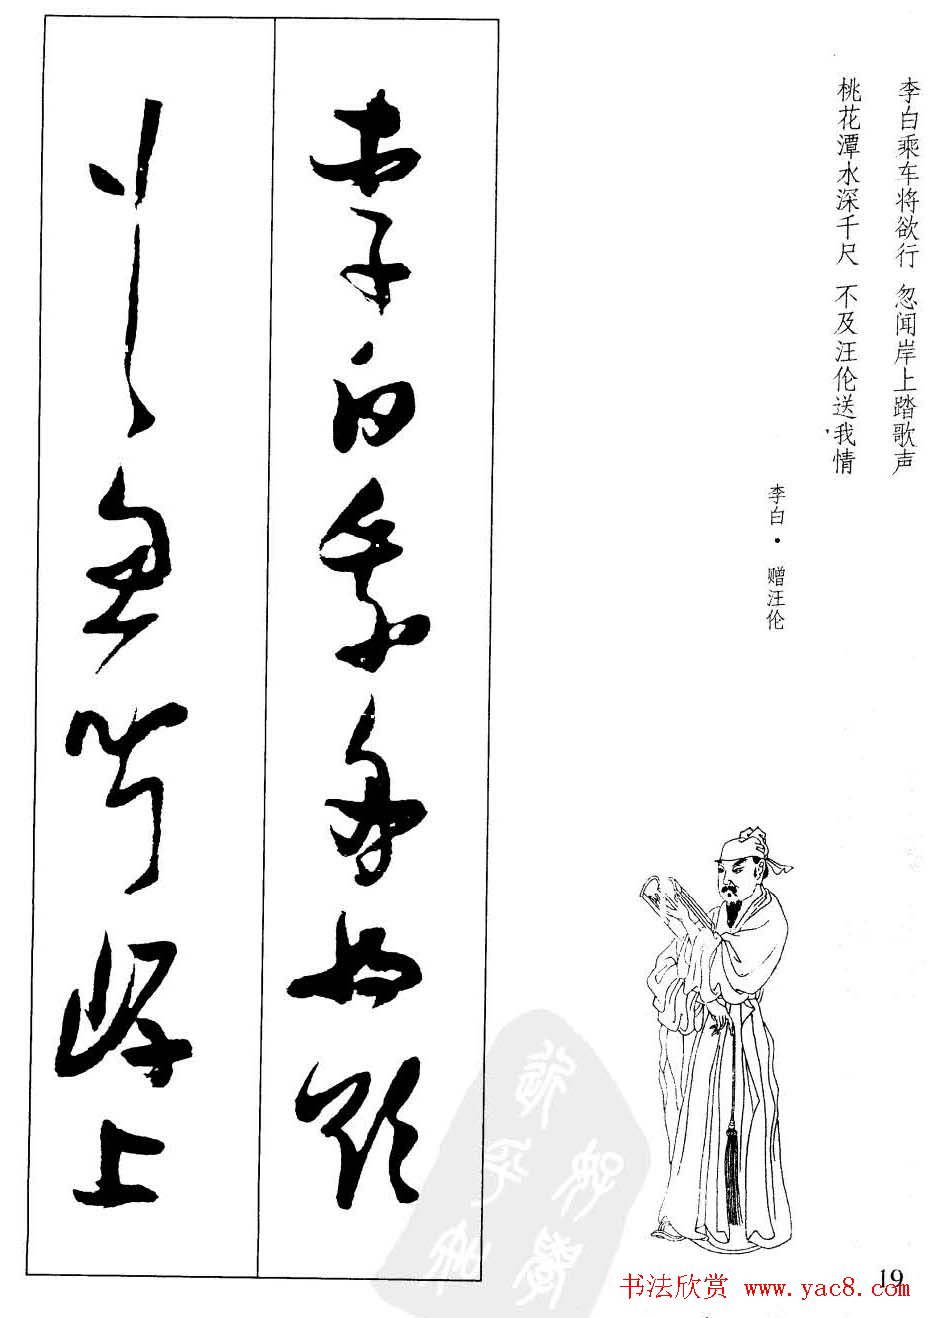 李白乘车将欲行 忽闻岸上踏歌声
桃花潭水深千尺 不及汪伦送我情
李白·赠汪伦
李白乘舟将欲
行忽闻岸上
19
书法欣赏 www.yac8.com